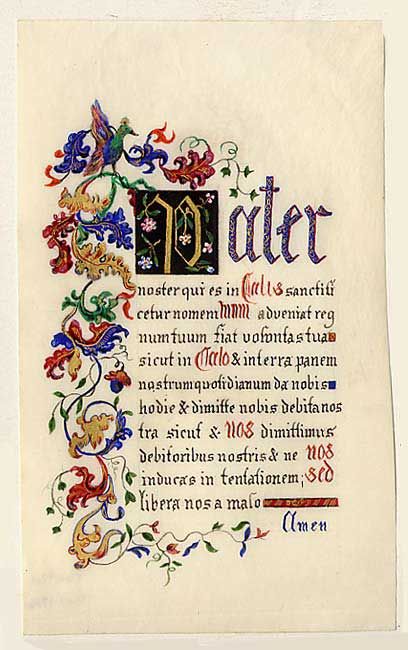 Pater
noster qui es in Cœlis sanctifi
cetur nomen tuum adveniat reg
num tuum fiat voluntas tua
sicut in Cœlo & in terra panem
nostrum quotidianum da nobis
hodie & dimitte nobis debita nos
tra sicut & nos dimittimus
debitoribus nostris & ne nos
inducas in tentationem; sed
libera nos a malo
Amen